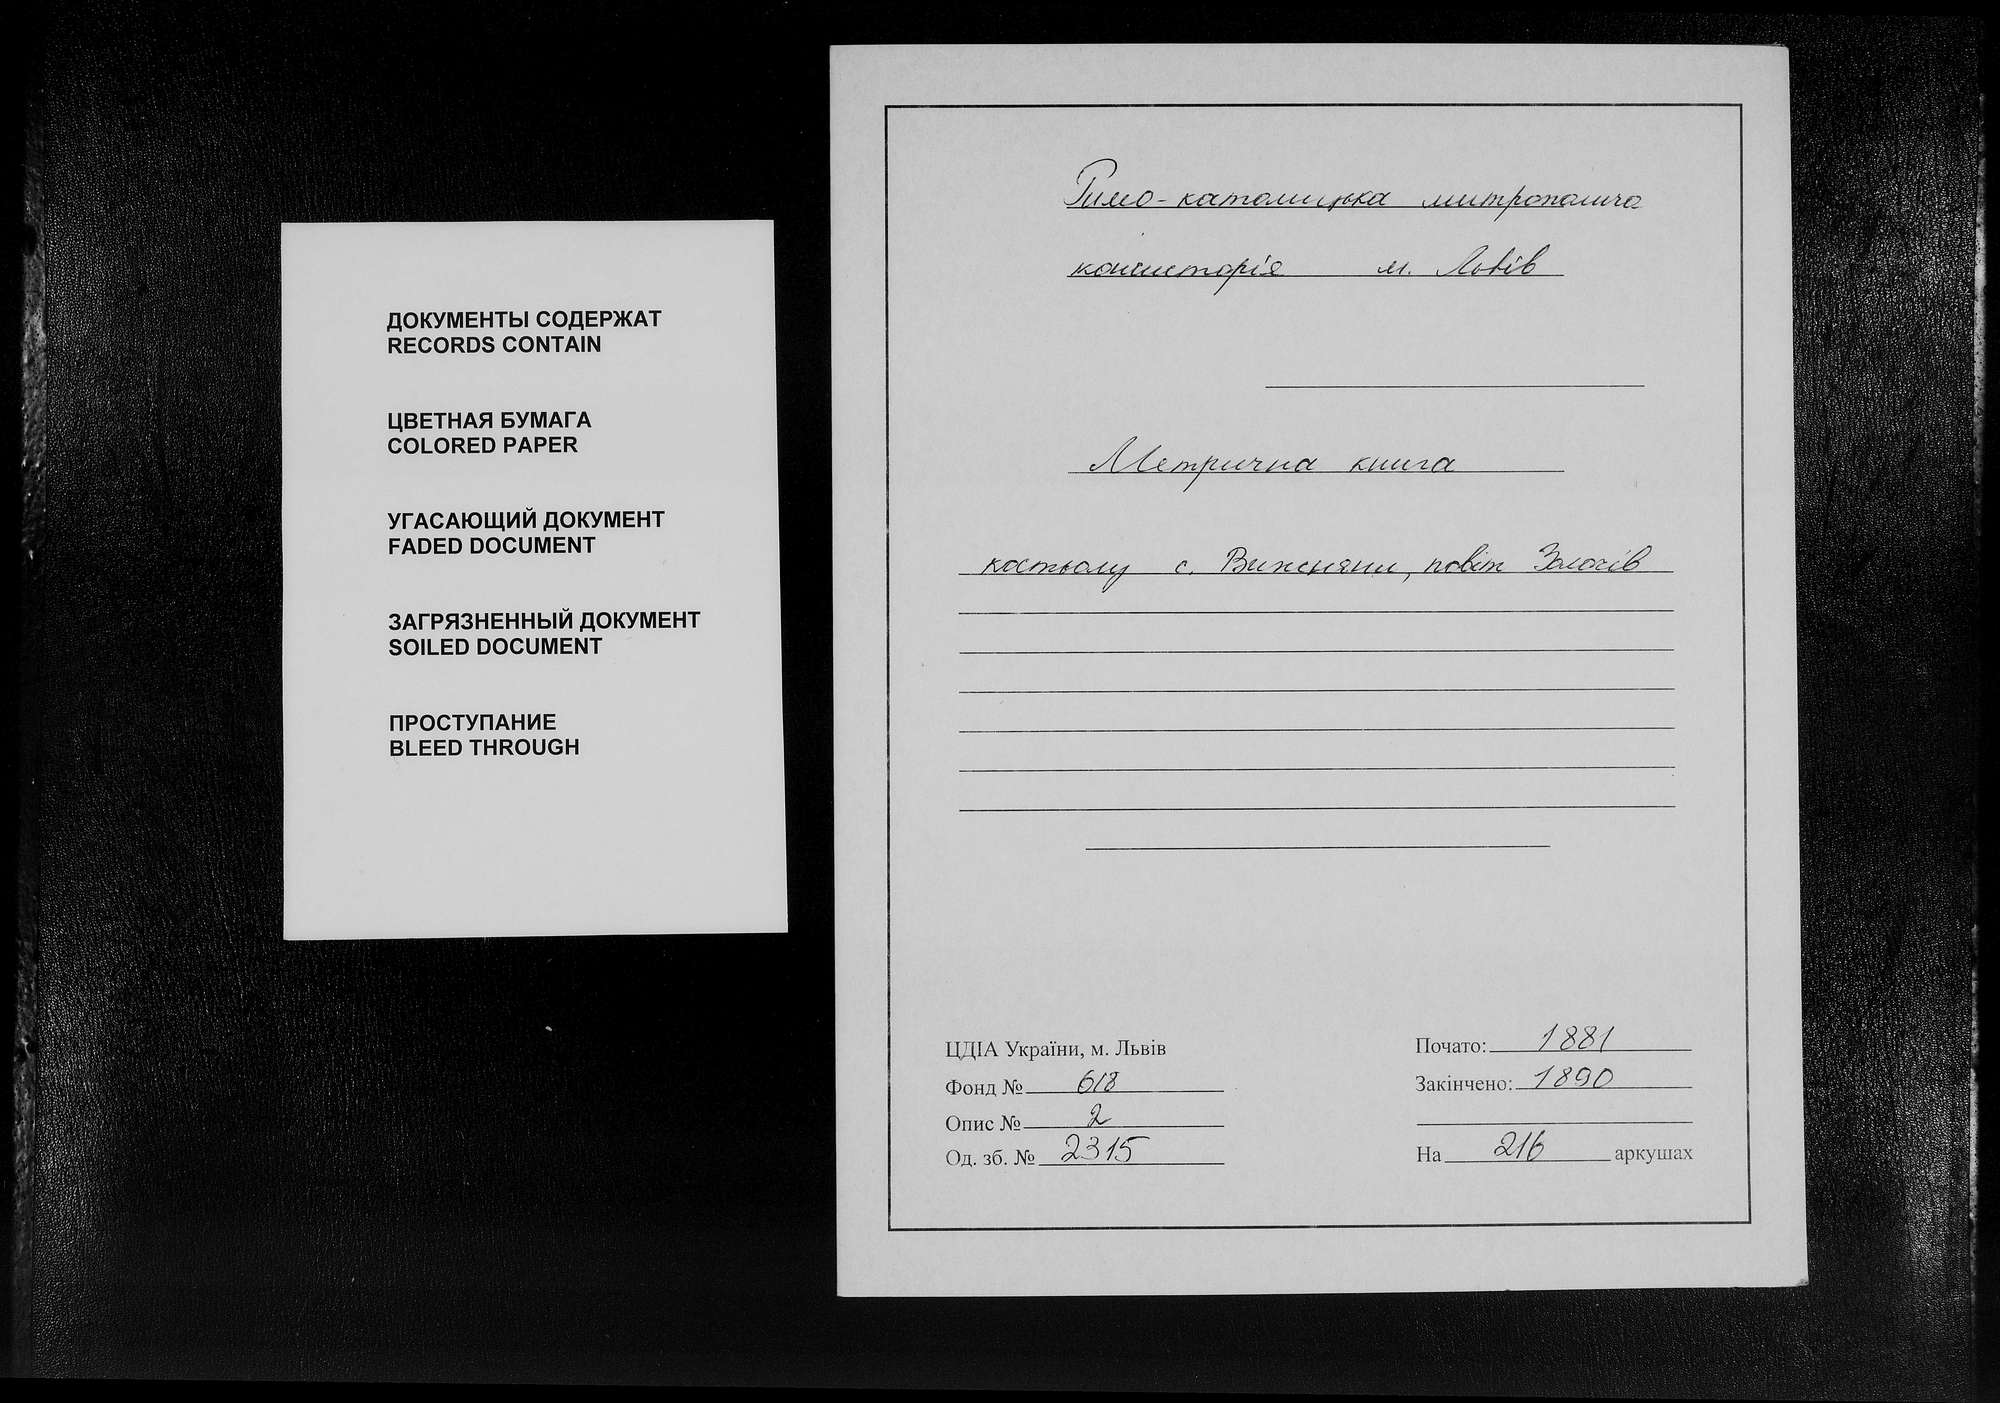 ДОКУМЕНТЫ СОДЕРЖАТ
RECORDS CONTAIN
ЦВЕТНАЯ БУМАГА
COLORED PAPER
УГАСАЮЩИЙ ДОКУМЕНТ
FADED DOCUMENT
ЗАГРЯЗНЕННЫЙ ДОКУМЕНТ
SOILED DOCUMENT
ПРОСТУПАНИЕ
BLEED THROUGH
Римо-католицька митрополича
консисторія м. Львів
Метрична книга
костьолу с. Вижняни, повіт Золочів
ЦДІА України, м. Львів
Фонд № 618
Опис № 2
Од. зб. № 2315
Почато: 1881
Закінчено: 1890
На 216 аркушах